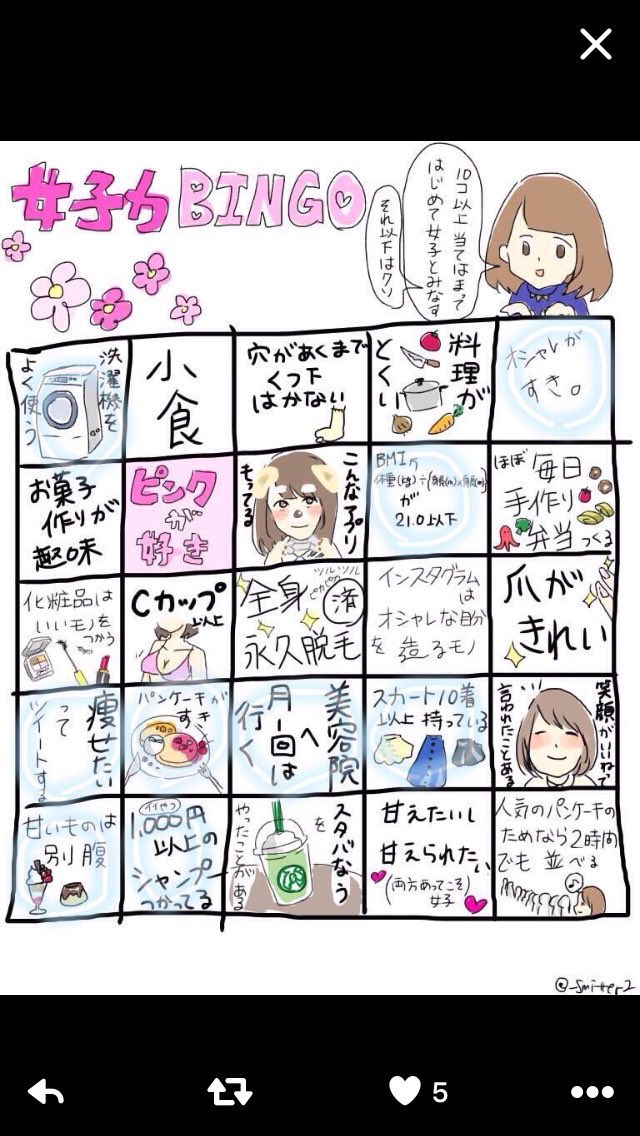 女子力BINGO
10コ以上当てはまって
はじめて女子とみなす
それ以下はクソ
洗濯機を
よく使う
小食
穴があくまで
くつ下
はかない
料理が
とくい
オシャレが
すき。
お菓子
作りが
趣味
ピンク
が
好き
こんなアプリ
もってる
BMIが
体重(kg)÷{身長(m)×身長(m)}
が
21.0以下
ほぼ毎日
手作り
弁当つくる
化粧品は
いいモノを
つかう
Cカップ
以上
ツルツル
ピカピカ
全身
済
永久脱毛
インスタグラム
は
オシャレな自分
を造るモノ
爪が
きれい
痩せたい
って
ツイートする
パンケーキが
すき
美容院
へ
月一回は
行く
スカート10着
以上持っている
笑顔がいいねで
言われたことある
甘いものは
別腹
1回やつ
1,000円
以上の
シャンプー
つかってる
スタバなう
を
やったことがある
甘えたいし
甘えられたい
(両方あってこそ
女子)
人気のパンケーキの
ためなら2時間
でも並べる
@_Smitter2
5